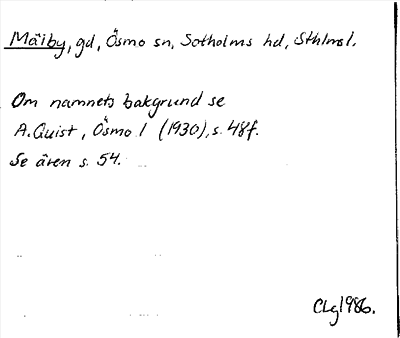 Måiby, gd, Ösmo sn, Sotholms hd, Sthlmsl.
Om namnets bakgrund se
A. Quist, Ösmo 1 (1930), s. 48f.
Se även s. 54.
CLg 1986.